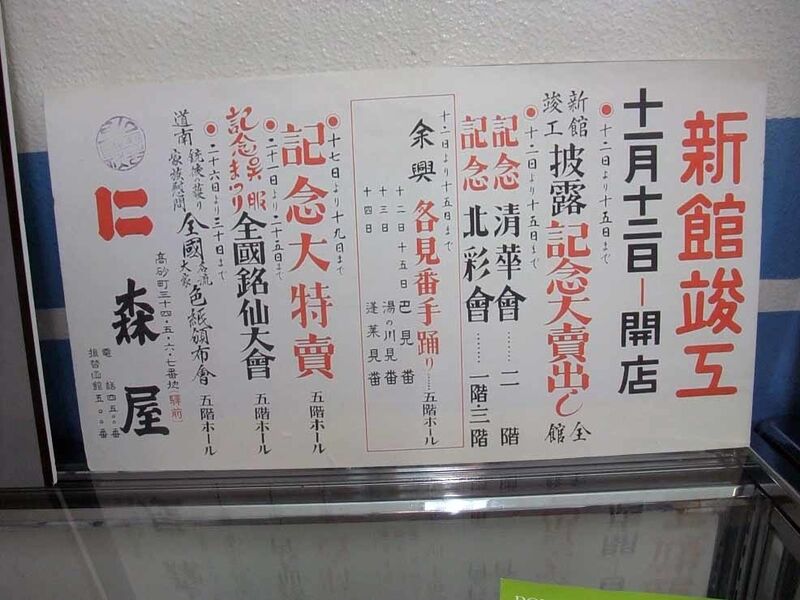 新館竣工
十一月十二日ー開店
●十二日より十五日まで
新館竣工披露記念大賣出し全館
記念清華會……二階
記念北彩會……一階三階
十二日より十五日まで
余興 各見番手踊り……五階ホール
十二日十五日 巴見番
十三日 湯の川見番
十四日 蓬莱見番
●十七日より十九日まで
記念大特賣 五階ホール
●二十一日より二十五日まで
記念呉服まつり 全國銘仙大會 五階ホール
●二十六日より三十日まで
道南銃後の護り家族慰問 全國名流大家色紙頒布會 五階ホール
仁 森屋
高砂町三十四・五・六・七番地(驛前)
電話四五〇〇番
振替函館五〇〇番